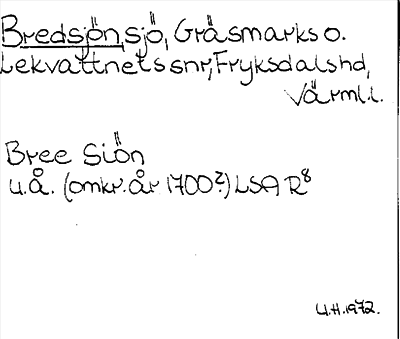 Bredsjön, sjö, Gräsmarks o.
Lekvattnets snr, Fryksdals hd,
Värml. l.
Bree Siön
u.å. (omkr. år 1700?) LSA R8
U.H. 1972.